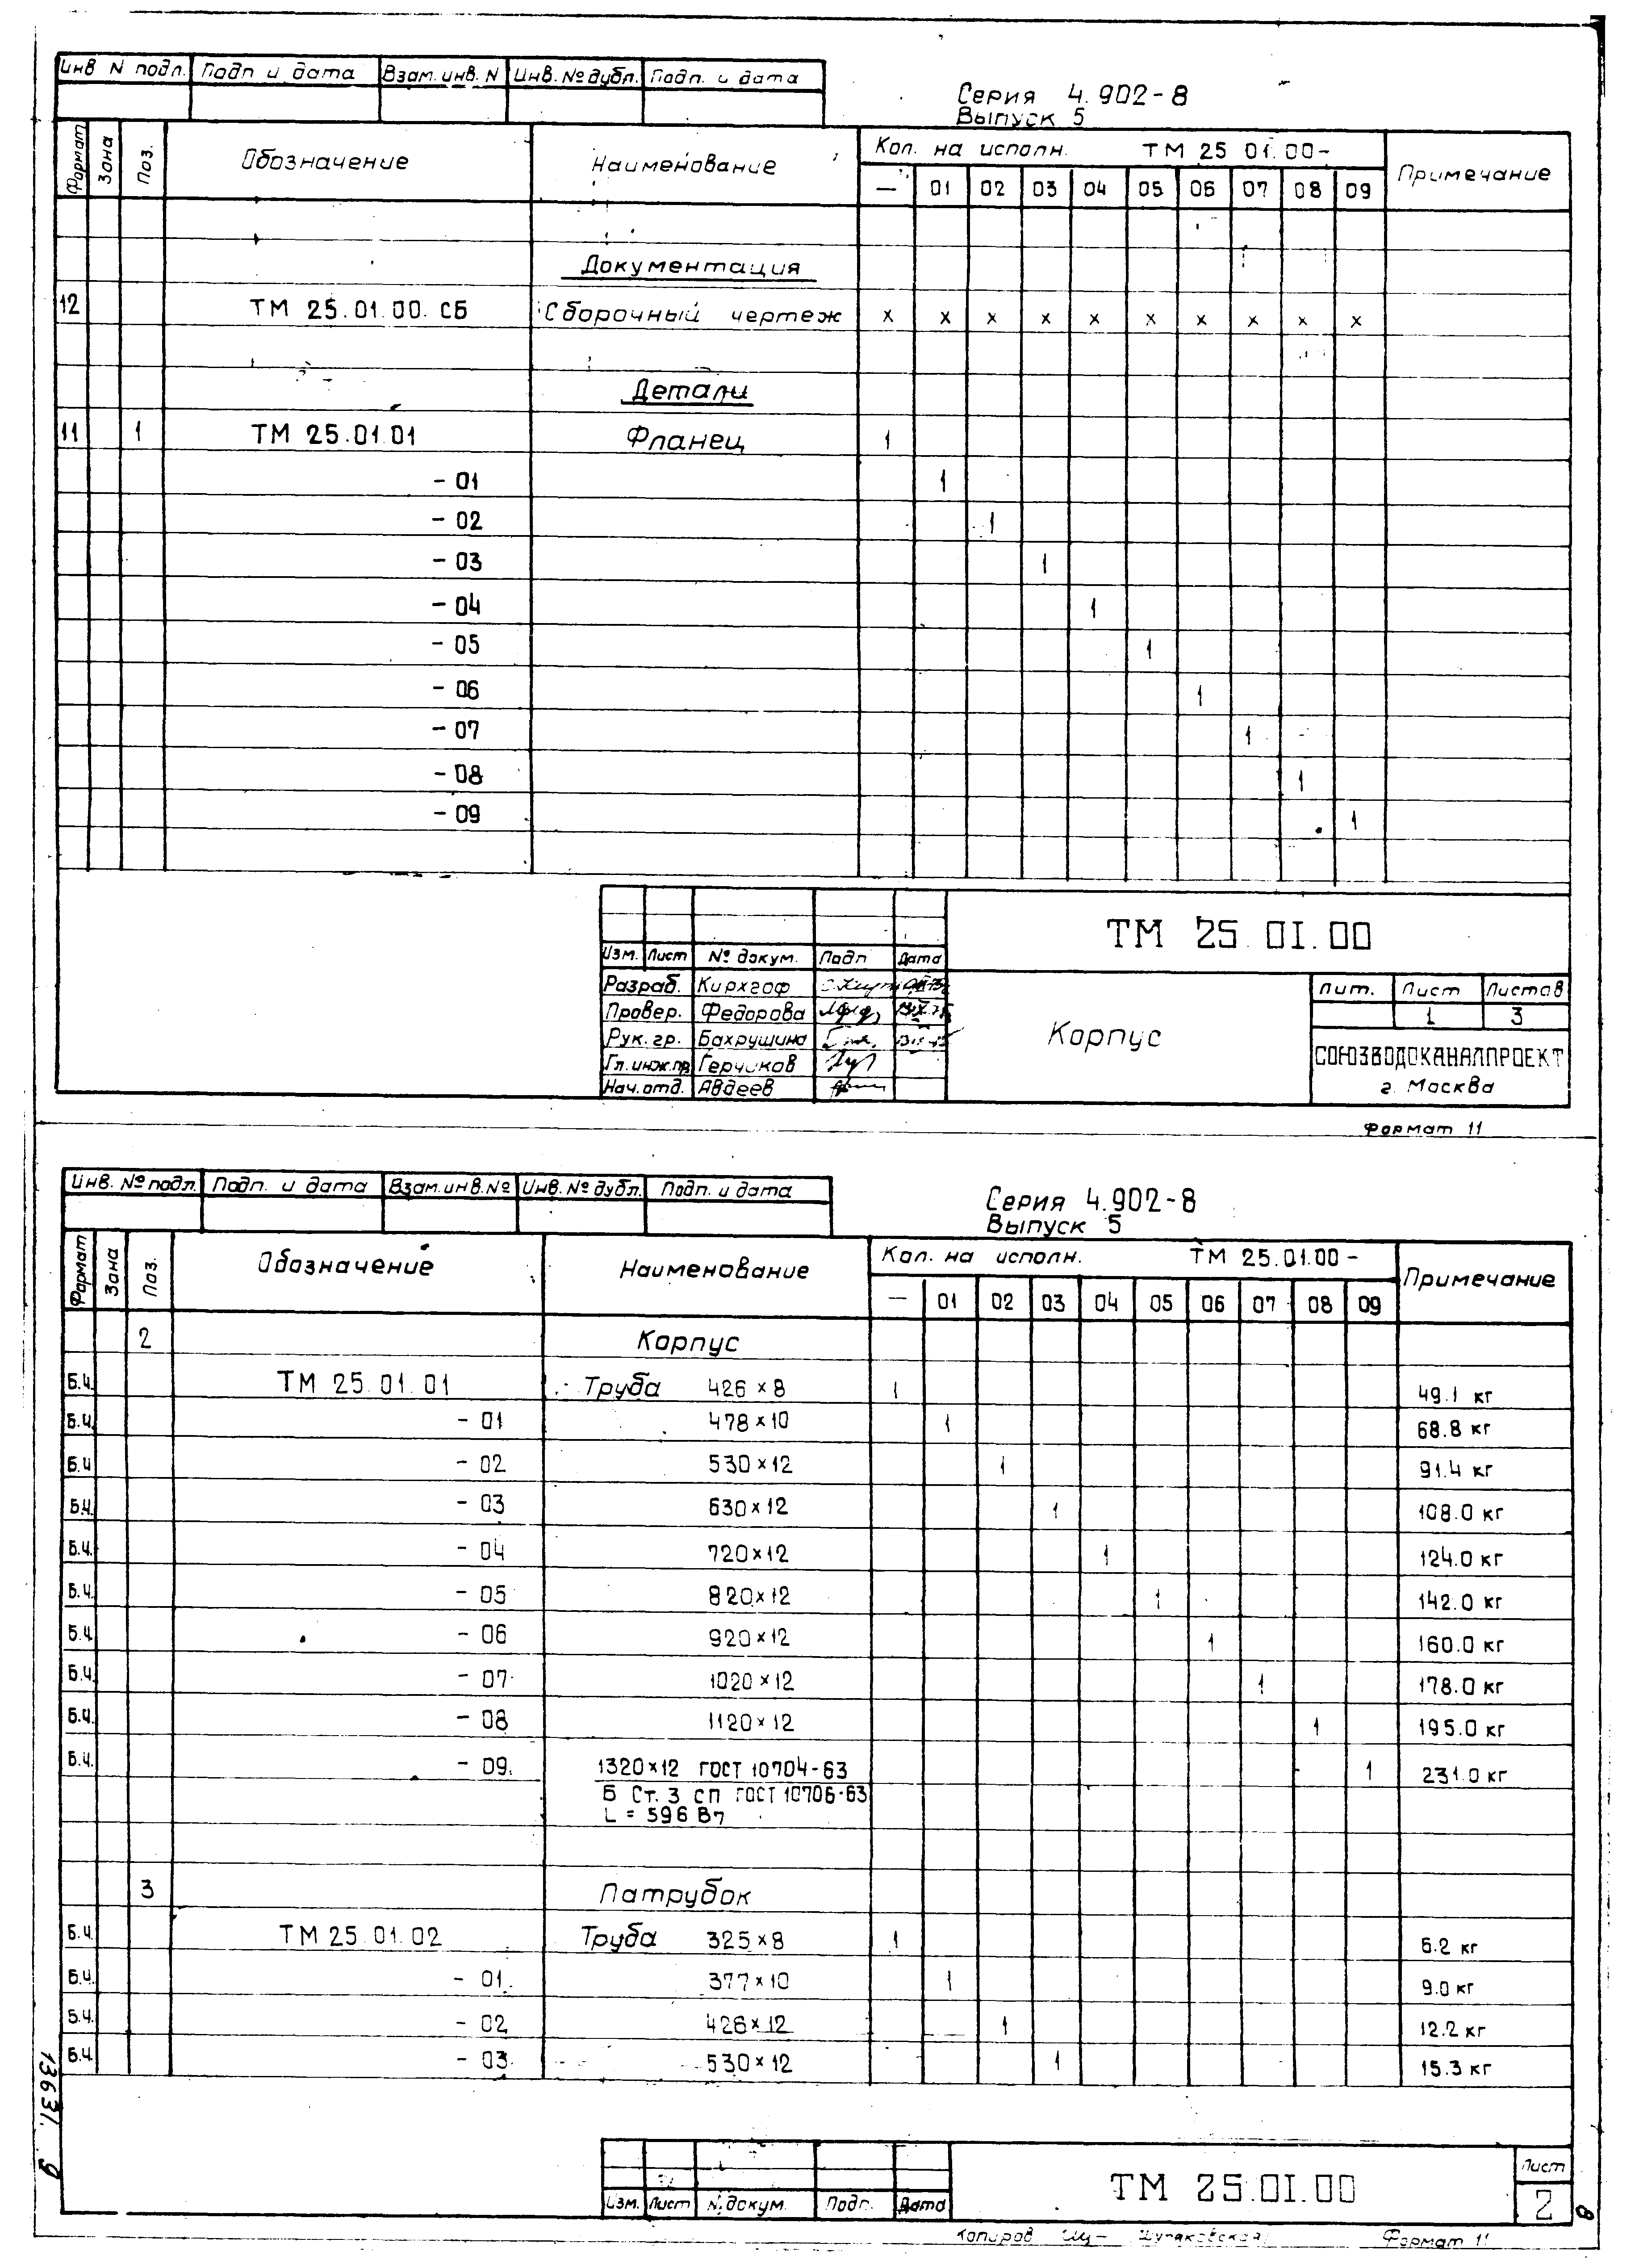 Инв N подл. Подп и дата Взам. инв. N Инв. № дубл. Подп. и дата
Серия 4.902-8
Выпуск 5
Формат Зона Поз. Обозначение Наименование Кол. на исполн. ТМ 25 01.00- Примечание
— 01 02 03 04 05 06 07 08 09
Документация
12 ТМ 25.01.00.СБ Сборочный чертеж х х х х х х х х х х
Детали
11 1 ТМ 25.01.01 Фланец 1
- 01 1
- 02 1
- 03 1
- 04 1
- 05 1
- 06 1
- 07 1
- 08 1
- 09 1
ТМ 25.01.00
Изм. Лист № докум. Подп Дата
Разраб. Кирхгоф
Провер. Федорова
Рук. гр. Бахрушина
Гл. инж. пр. Герчиков
Нач. отд. Авдеев
Корпус
Лит. Лист Листов
1 3
СОЮЗВОДОКАНАЛПРОЕКТ
г. Москва
Формат 11
Инв. № подл. Подп. и дата Взам. инв. № Инв. № дубл. Подп. и дата
Серия 4.902-8
Выпуск 5
Формат Зона Поз. Обозначение Наименование Кол. на исполн. ТМ 25.01.00- Примечание
— 01 02 03 04 05 06 07 08 09
2 Корпус
Б.Ч. ТМ 25.01.01 Труба 426×8 1 49.1 кг
Б.Ч. - 01 478×10 1 68.8 кг
Б.Ч - 02 530×12 1 91.4 кг
Б.Ч. - 03 630×12 1 108.0 кг
Б.Ч. - 04 720×12 1 124.0 кг
Б.Ч. - 05 820×12 1 142.0 кг
Б.Ч. - 06 920×12 1 160.0 кг
Б.Ч. - 07 1020×12 1 178.0 кг
Б.Ч. - 08 1120×12 1 195.0 кг
Б.Ч. - 09 1320×12 ГОСТ 10704-63 1 231.0 кг
Б Ст. 3 сп ГОСТ 10706-63
L = 596 В7
3 Патрубок
Б.Ч. ТМ 25.01.02 Труба 325×8 1 6.2 кг
Б.Ч. - 01 377×10 1 9.0 кг
Б.Ч. - 02 426×12 1 12.2 кг
Б.Ч. - 03 530×12 1 15.3 кг
13631 9
ТМ 25.01.00
Изм. Лист N. докум. Подп. Дата
Лист
2
8
Копиров Формат 11